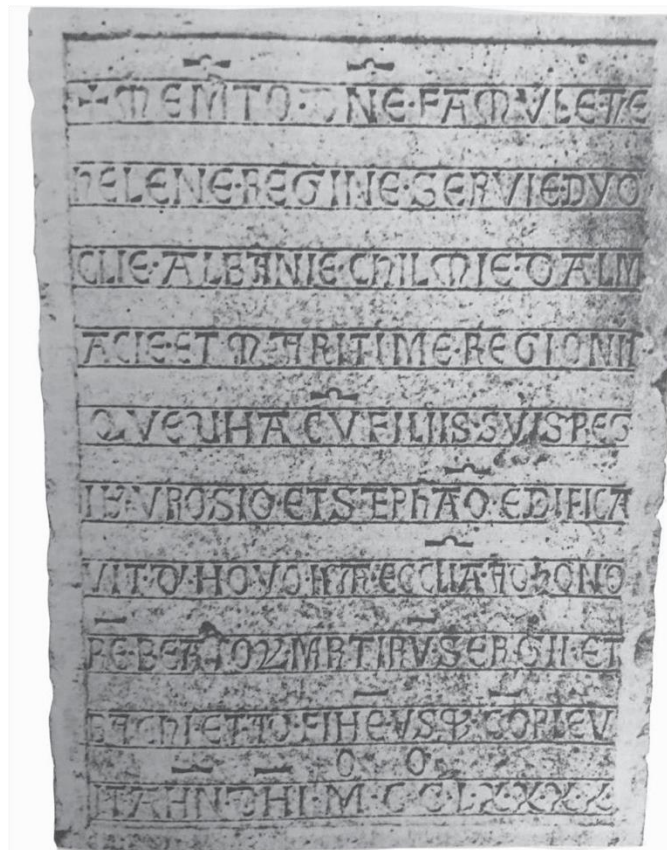 ✠ MEM̅TO · D̅NE · FAMVLE TVE
HELENE · REGINE · SERVIE DYO
CLIE · ALBANIE · CHILMIE · DALM
ACIE · ET MARITIME · REGIONIS
QVE UNA CV̅ FILIIS · SVIS · REG
VROSIO · ET STEPHA̅O · EDIFICA
VIT · D · NOVO · ECCL̅IA · AD HONO
RE · BEATOꝜ · MARTIRV̅ SERGII · ET
BACHI · ET AD FINE̅ VSQ · CO̅PLEV
IT AN̅N · D̅NI · M · C · C · L · X · X · X · X